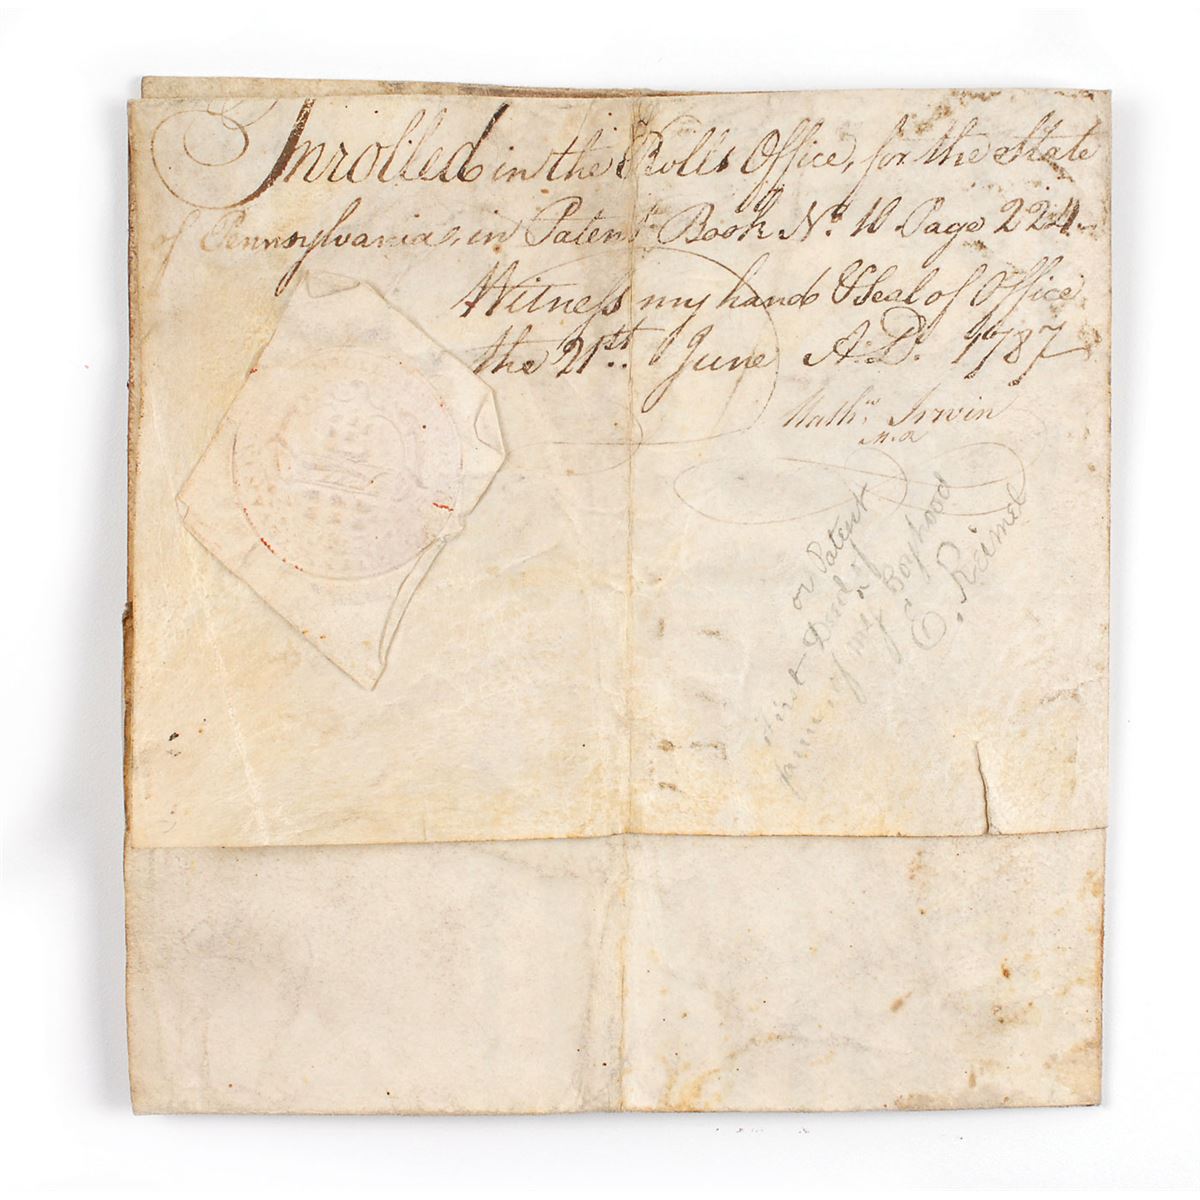 Inrolled in the Rolls Office, for the State
of Pennsylvania, in Patent Book No. 10 Page 224.
Witness my hand & Seal of Office
the 21st. June A.D. 1787
Nathl. Irvin
M.R.
first Deed of
or Patent
farm of my Boyhood
E. Reimel